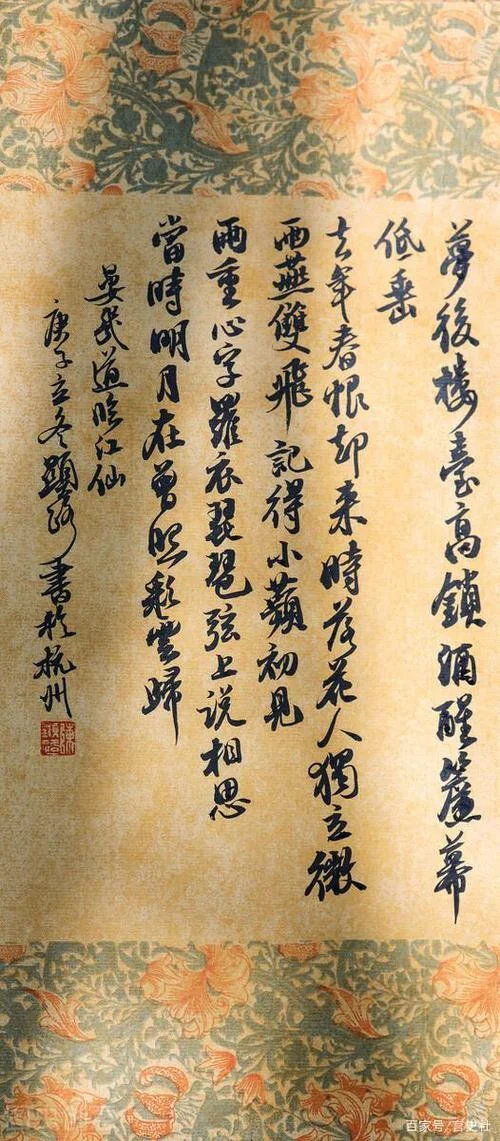 夢後楼臺高鎖酒醒簾幕
低垂
去年春恨却来時落花人獨立微
雨燕雙飛 記得小蘋初見
兩重心字羅衣琵琶弦上说相思
當時明月在曾照彩雲歸
晏幾道临江仙
庚子立冬 書於杭州
百家号/官史社